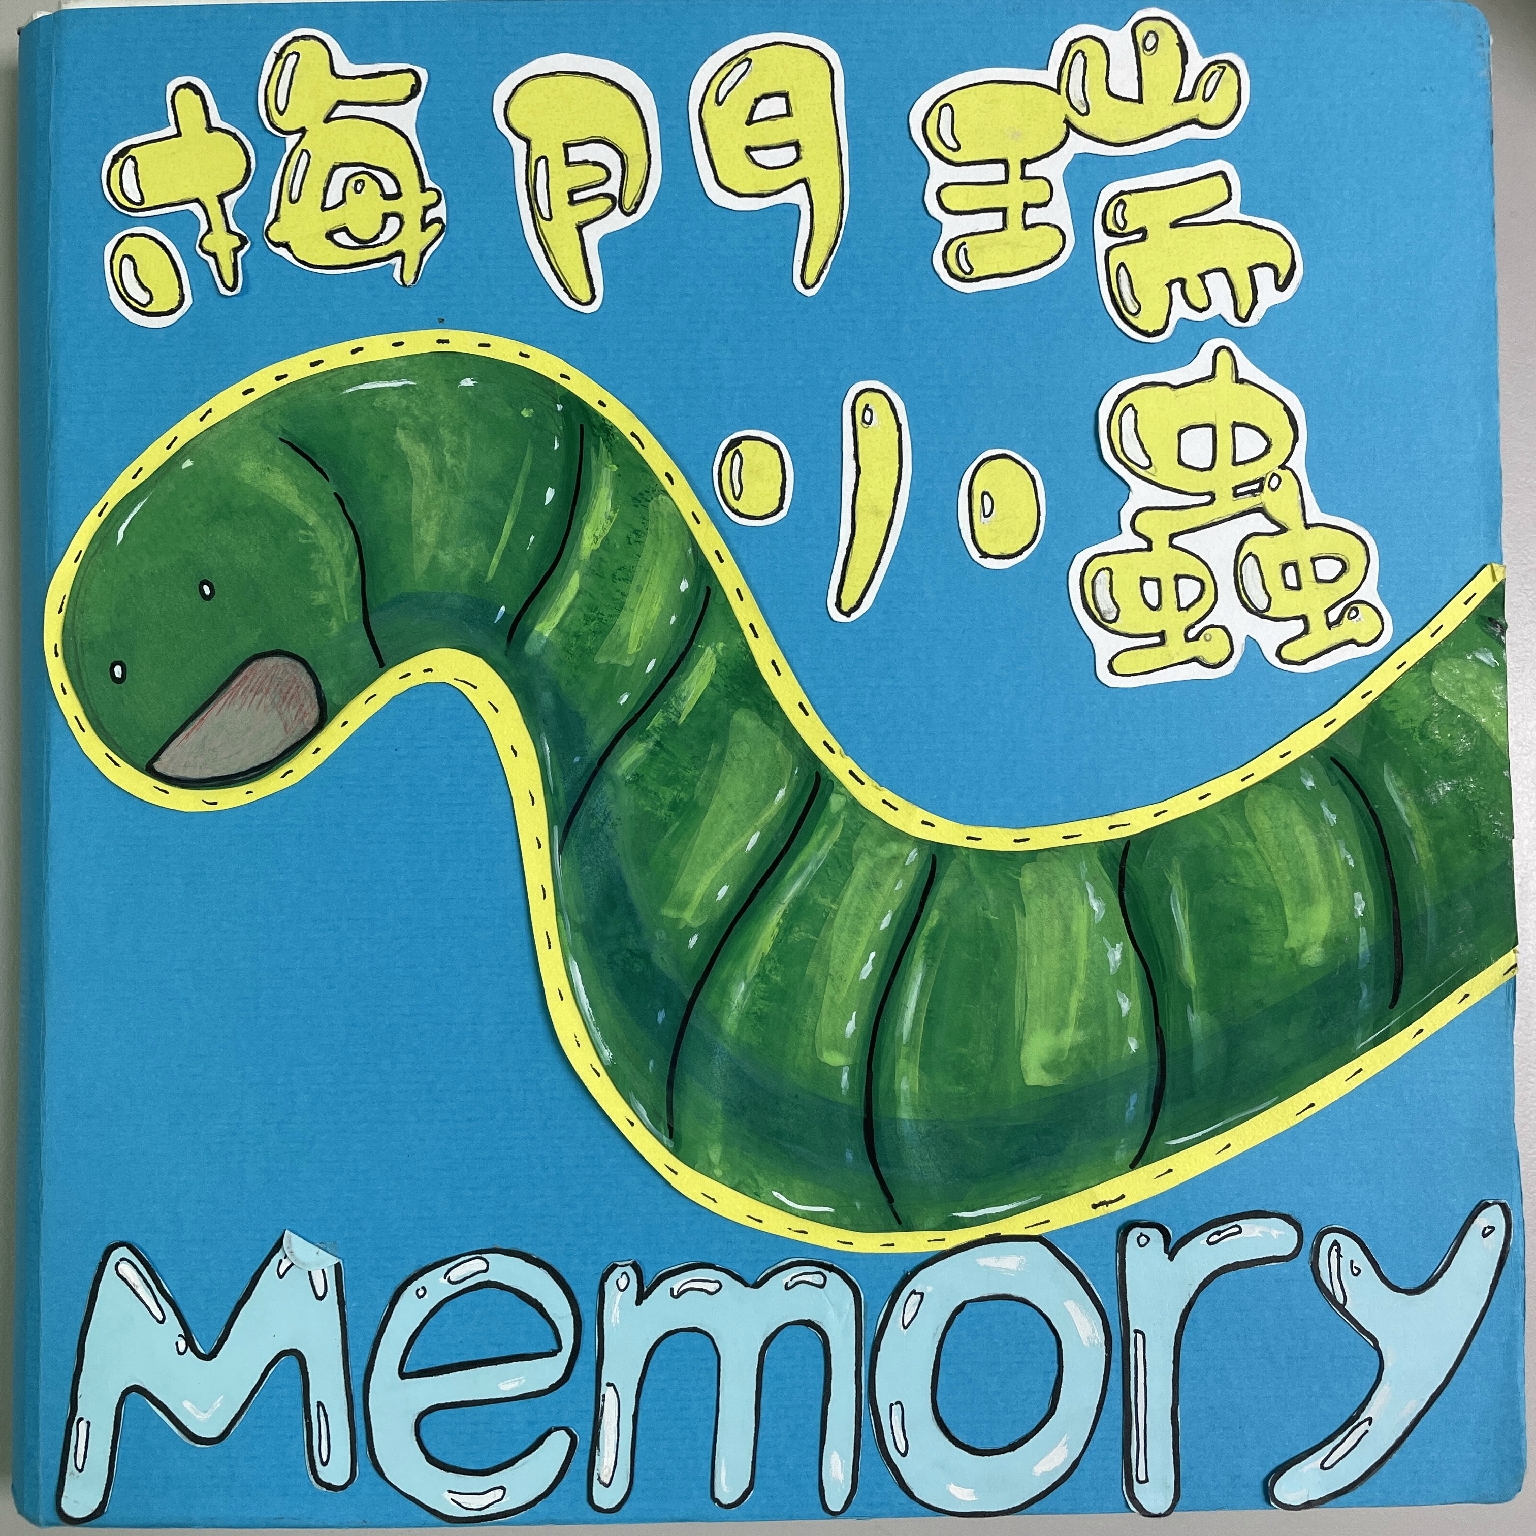 梅門瑞
小蟲
Memory